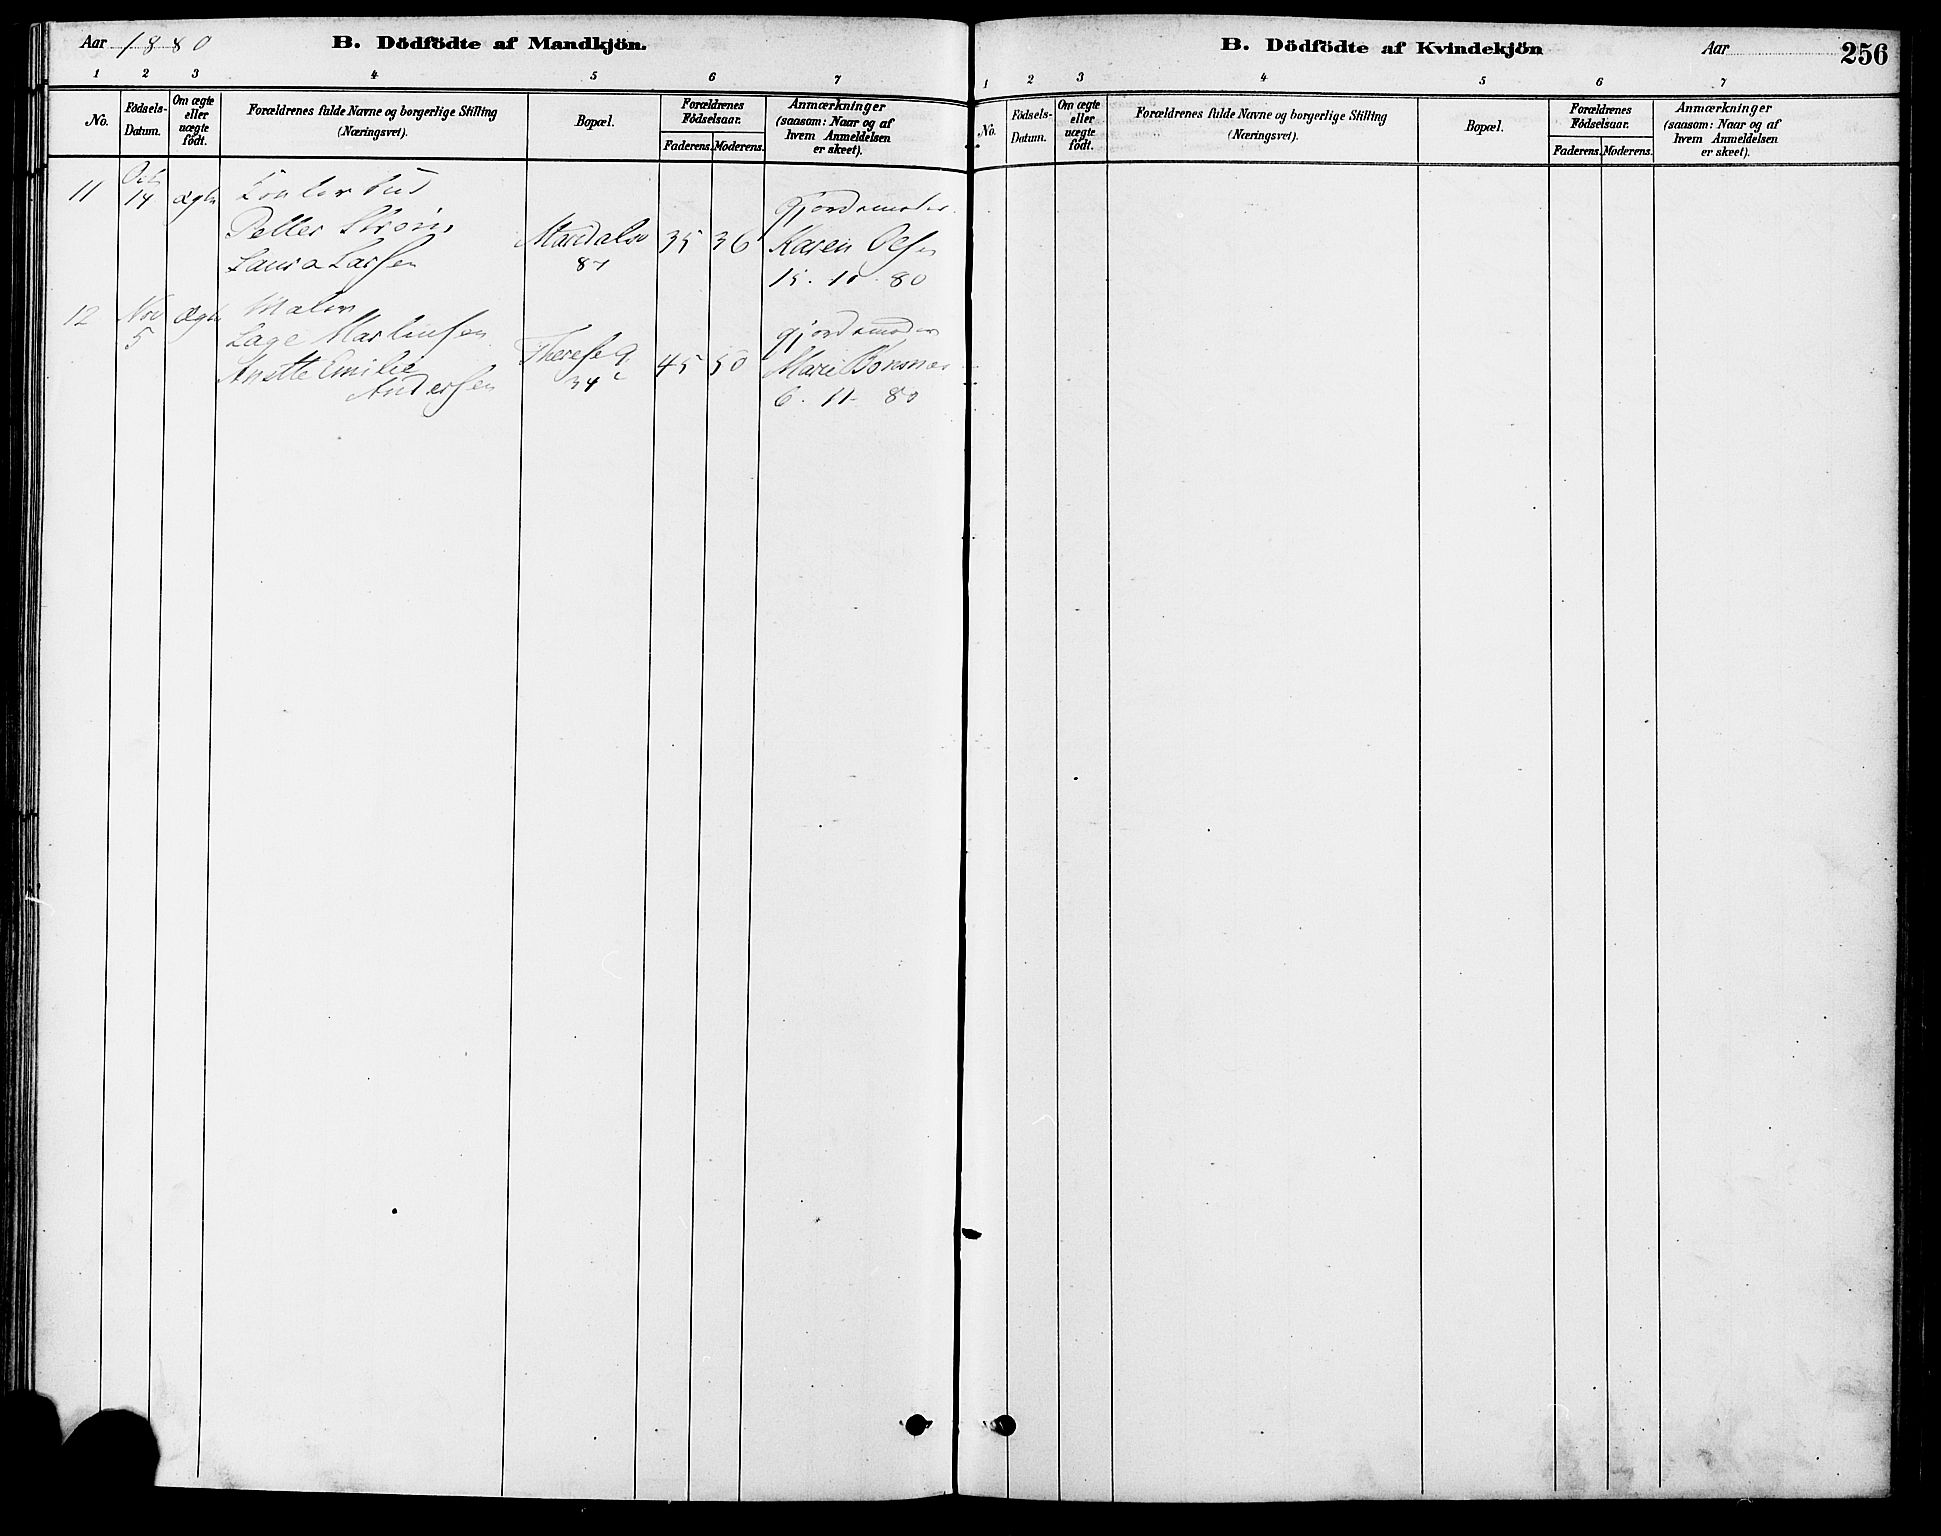 Aar 1880
B. Dödfödte af Mandkjön.
1 2 3 4 5 6 7
No.
Födsels-Datum.
Om ægte eller uægte födt.
Forældrenes fulde Navne og borgerlige Stilling (Næringsvei).
Bopæl.
Forældrenes Födselsaar.
Faderens. Moderens.
Anmærkninger (saasom: Naar og af hvem Anmeldelsen er skeet).
11 Oct 14 ægte
Petter Strøm
Laura Larsen
35 36
Gjordemoder
Karen Olsen
15. 10. 80
12 Nov 5 ægte
Maler
Lage Martinsen
Anette Emilie
Andersen
Therese g.
34 c
45 50
gjordemoder
Marie
6. 11. 80
B. Dödfödte af Kvindekjön
Aar
256
1 2 3 4 5 6 7
No.
Födsels-Datum.
Om ægte eller uægte födt.
Forældrenes fulde Navne og borgerlige Stilling (Næringsvei).
Bopæl.
Forældrenes Födselsaar.
Faderens. Moderens.
Anmærkninger (saasom: Naar og af hvem Anmeldelsen er skeet).